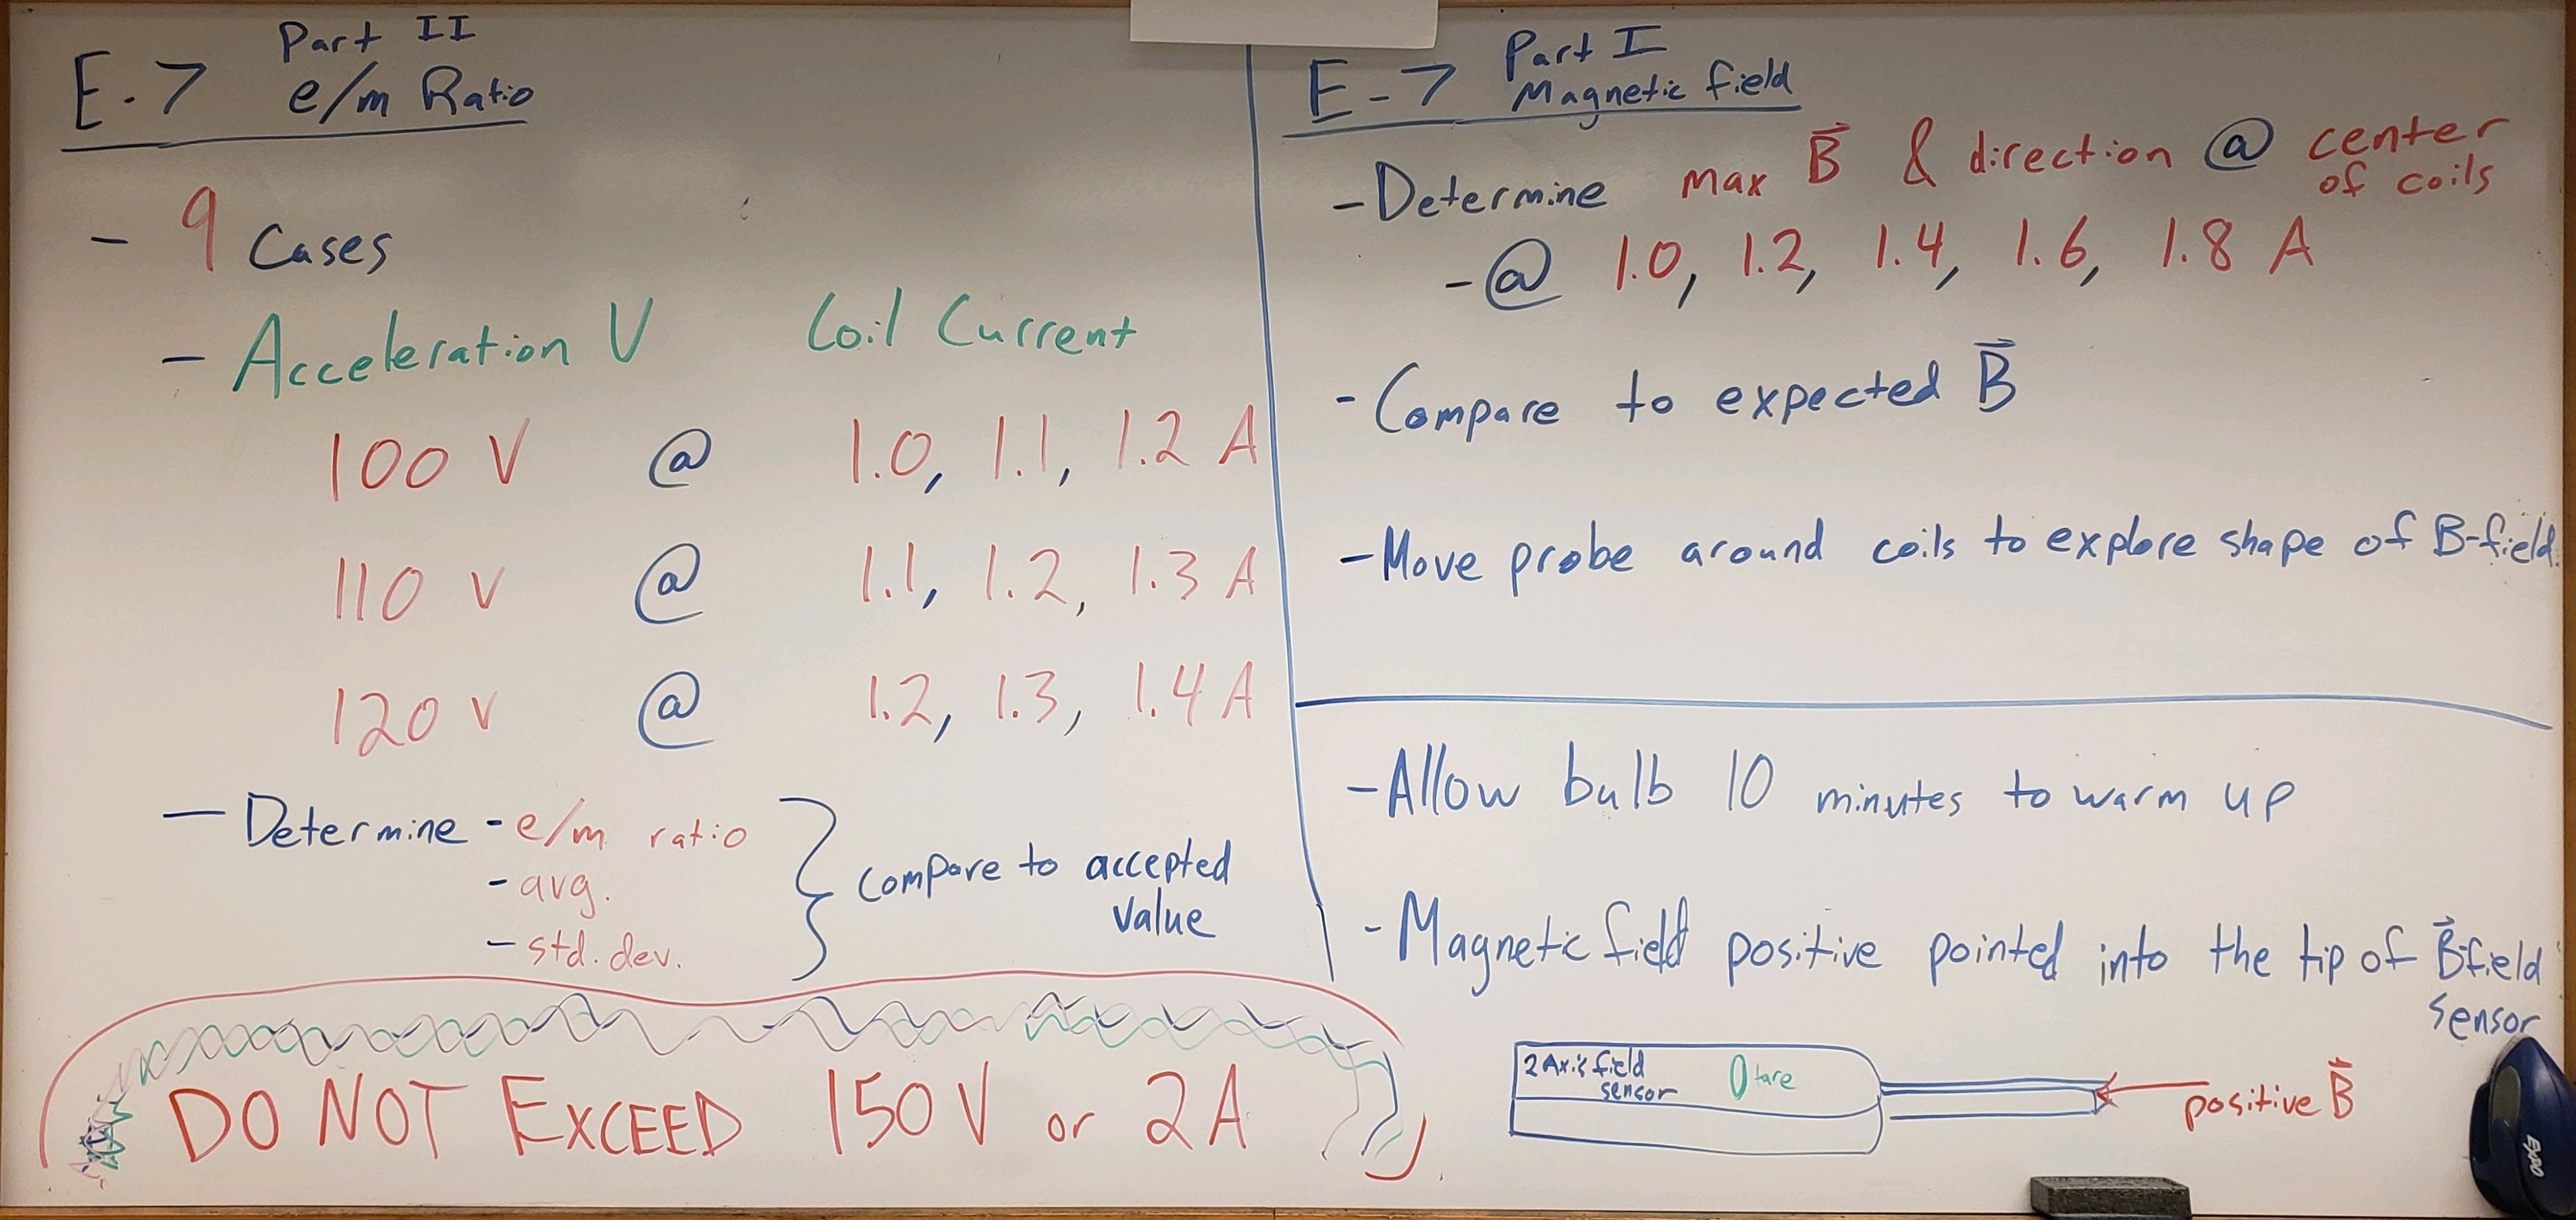 Part II
E.7 e/m Ratio
- 9 Cases
- Acceleration V Coil Current
100 V @ 1.0, 1.1, 1.2 A
110 V @ 1.1, 1.2, 1.3 A
120 V @ 1.2, 1.3, 1.4 A
- Determine - e/m ratio
- avg.
- std. dev.
compare to accepted
value
DO NOT EXCEED 150 V or 2 A
Part I
E-7 Magnetic field
- Determine max B⃗ & direction @ center
of coils
- @ 1.0, 1.2, 1.4, 1.6, 1.8 A
- Compare to expected B⃗
- Move probe around coils to explore shape of B-field.
- Allow bulb 10 minutes to warm up
- Magnetic field positive pointed into the tip of B⃗-field
sensor
2 Axis field
sensor
tare
positive B⃗
EXPO